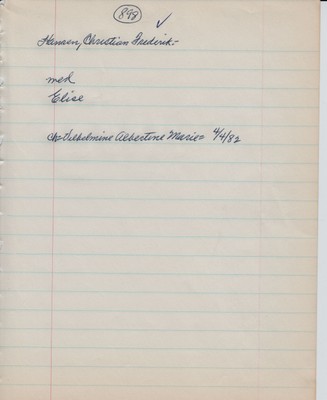 898
Hansen, Christian Frederik.-
med
Elise
ch= Vilhelmine Albertine Marie= 4/4/82